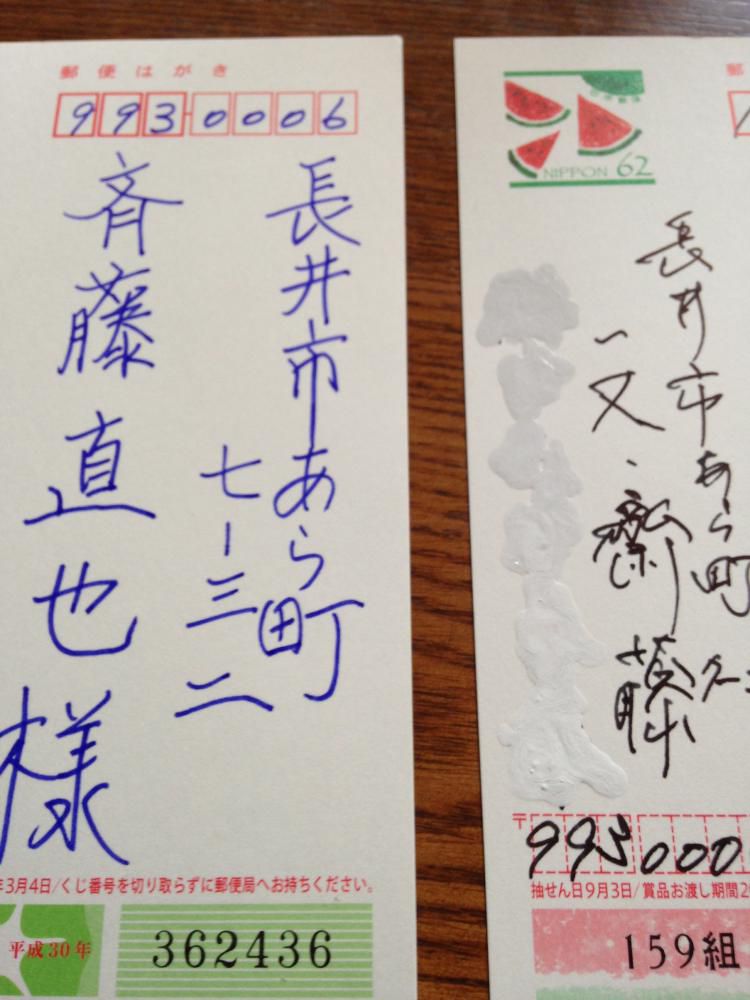 郵便はがき
993-0006
長井市あら町
七-三二
斉藤直也様
年3月4日/くじ番号を切り取らずに郵便局へお持ちください。
平成30年
362436
郵
日本郵便
NIPPON 62
長井市あら町
齋藤
〒993000
抽せん日9月3日/賞品お渡し期間
159組